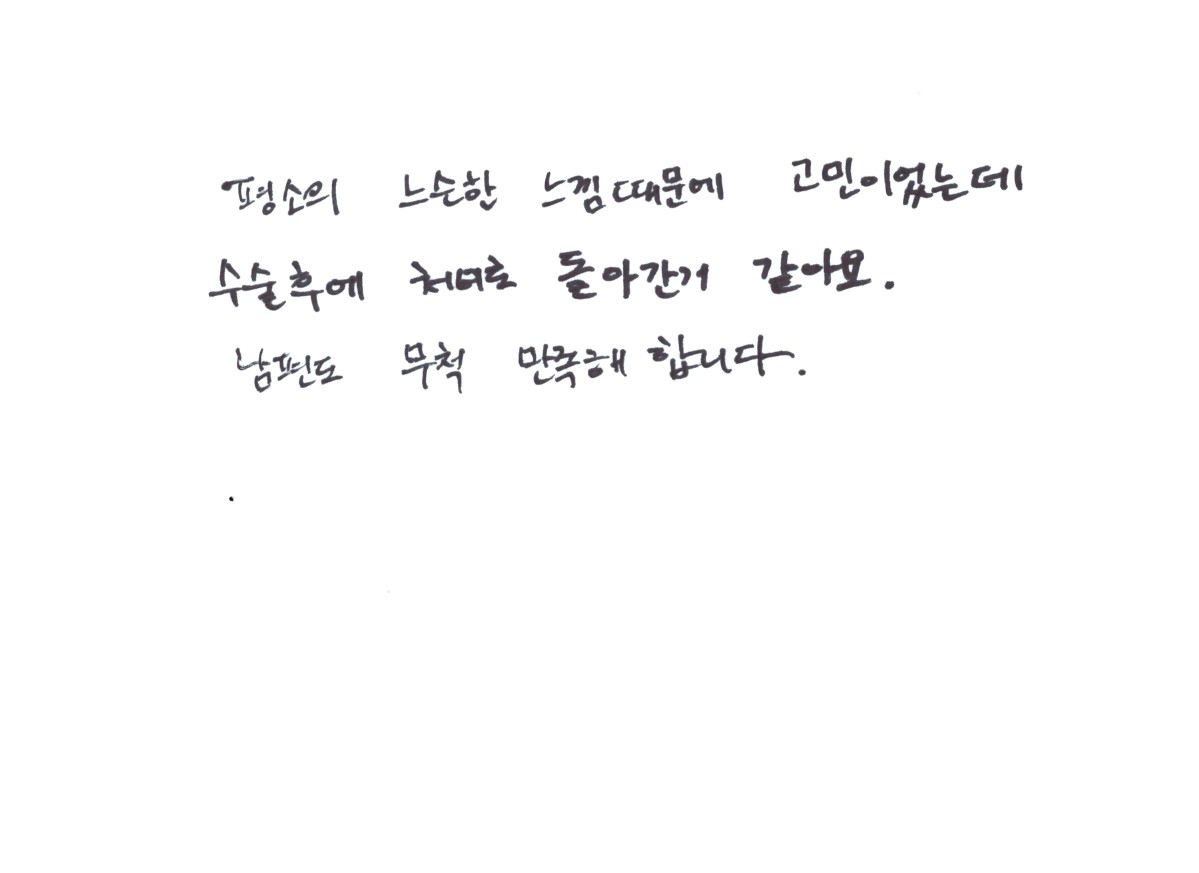 평소의 느슨한 느낌때문에 고민이었는데
수술후에 처녀로 돌아간거 같아요.
남편도 무척 만족해 합니다.